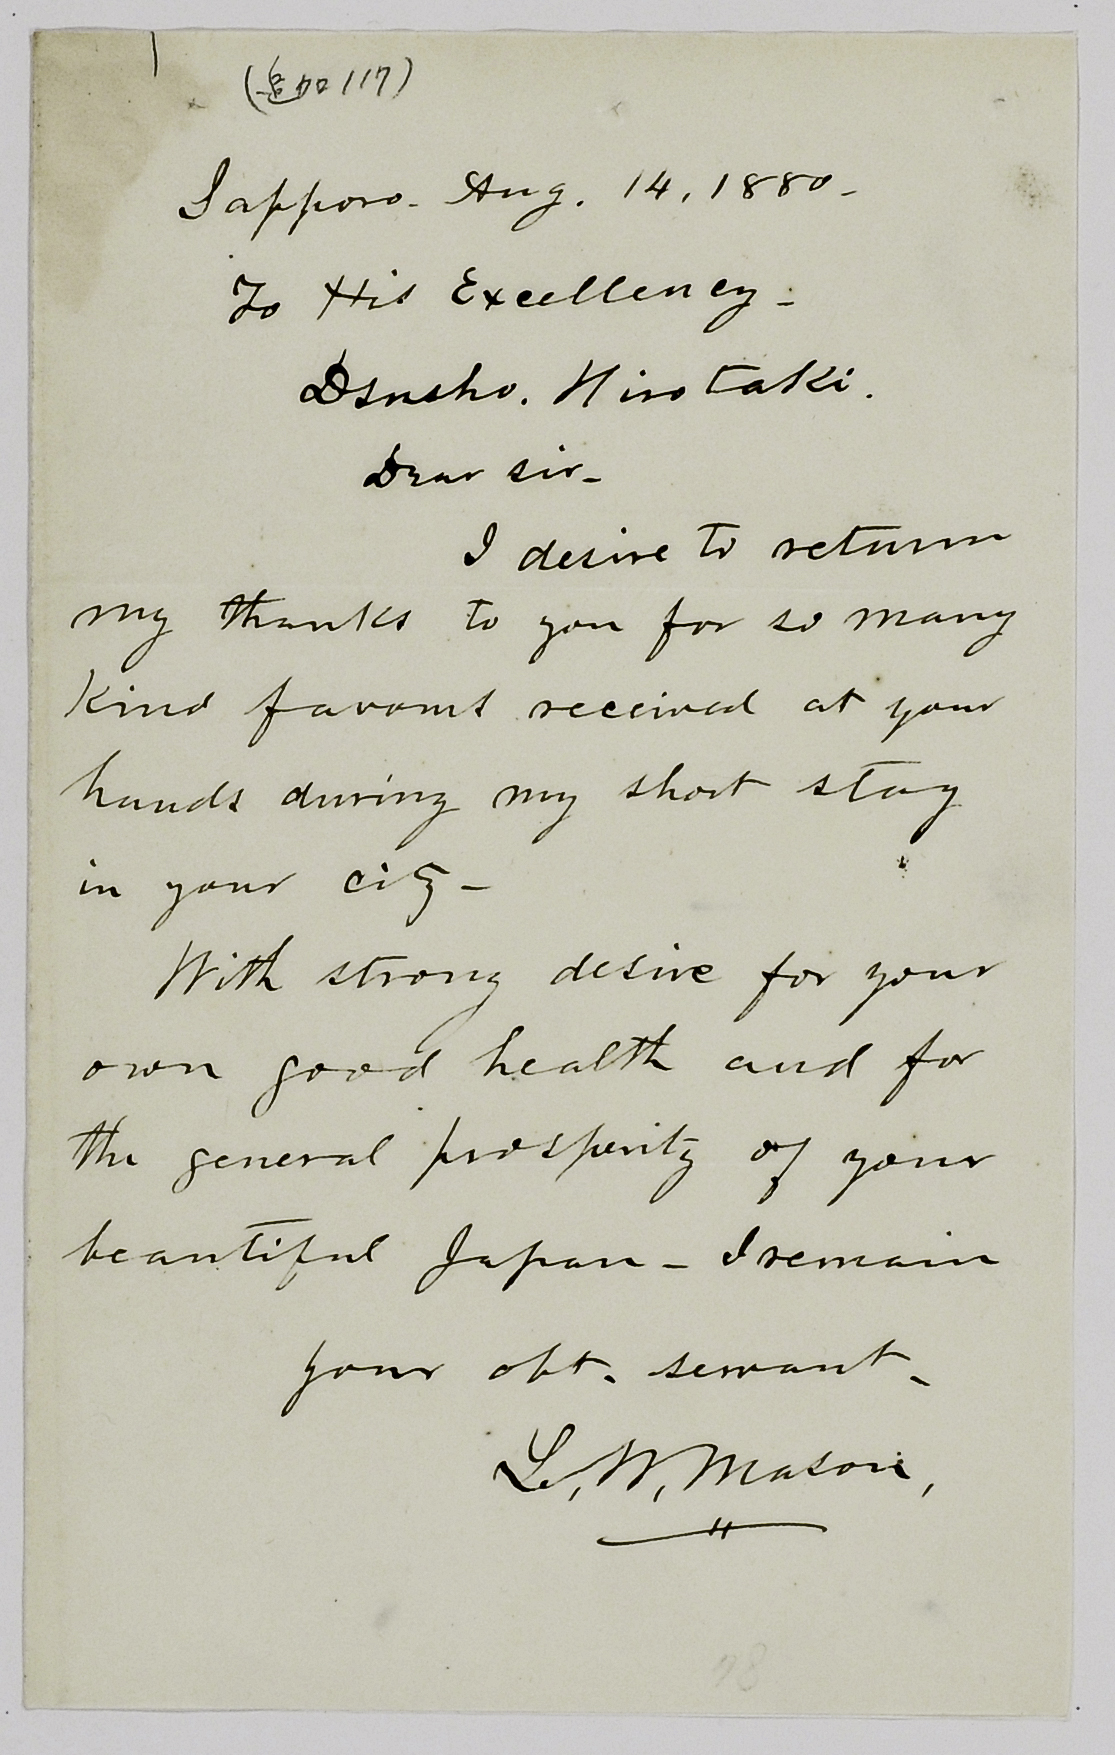 (追加117)
Sapporo. Aug. 14, 1880-
To His Excellency-
Dsusho. Hirotaki.
Dear sir-
I desire to return
my thanks to you for so many
kind favours received at your
hands during my short stay
in your city-
With strong desire for your
own good health and for
the general prosperity of your
beautiful Japan- I remain
your obt. servant-
L. W. Mason,